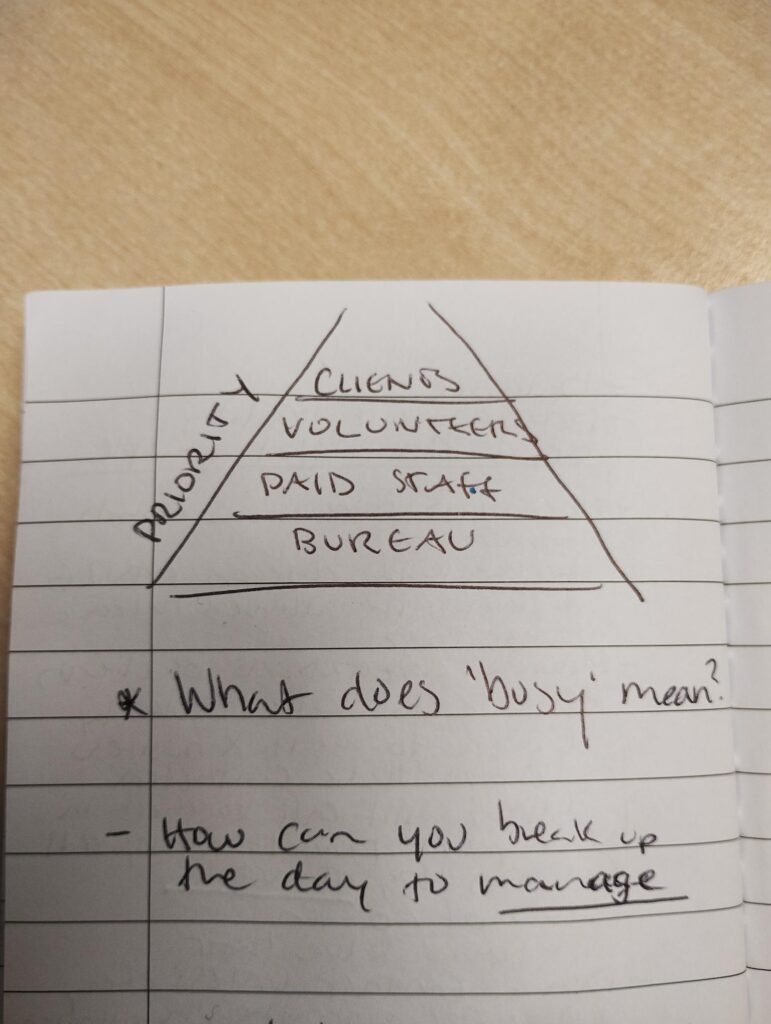 PRIORITY
CLIENTS
VOLUNTEERS
PAID STAff
BUREAU
* What does 'busy' mean?
- How can you break up
the day to manage